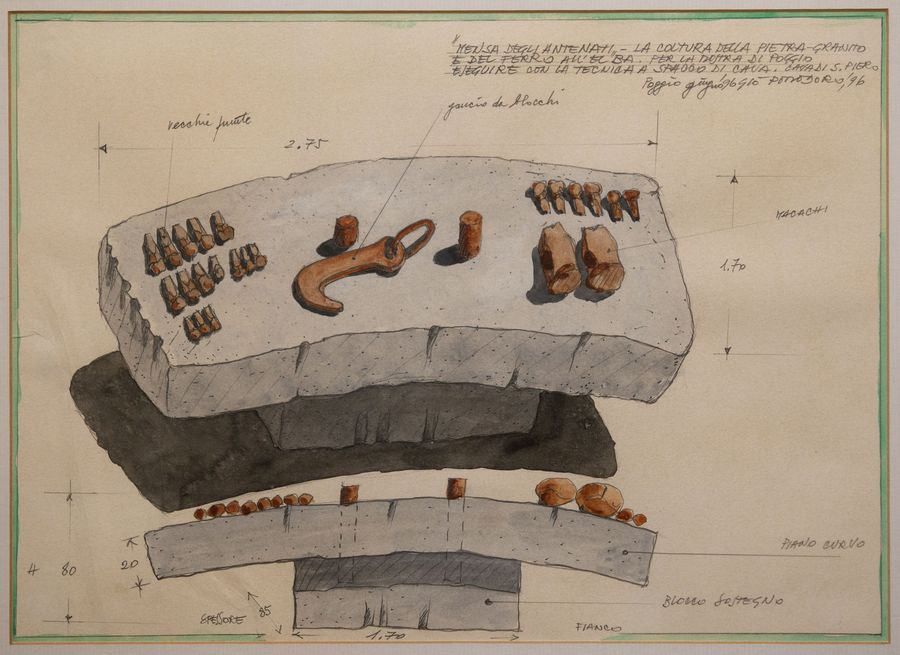 "MENSA DEGLI ANTENATI" - LA COLTURA DELLA PIETRA-GRANITO
E DEL FERRO ALL'ELBA. PER LA DITTA DI POGGIO
ESEGUIRE CON LA TECNICA A SPACCO DI CAVA. CAVA DI S. PIERO
Poggio giugno '96 GIÒ POMODORO '96
gancio da blocchi
vecchie punte
2.75
MACACHI
1.70
PIANO CURVO
20
4 80
BLOCCO SOSTEGNO
SPESSORE 85
1.70
FIANCO